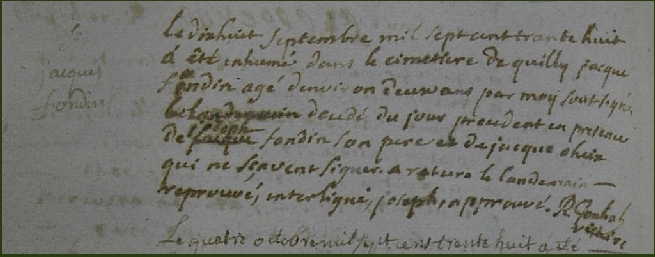 jacques
fondin
Le dixhuit septembre mil sept cent trante huit
a été inhumé dans le cimetiere de quilly jacque
fondin agé denviron deux ans par moy soussigné
decedé du jour precedent en presence
joseph
de jacque fondin son pere et de jacque
qui ne scavent signer. a rature le landemain —
reprouvé, interligne, joseph, approuvé. R
vicaire
Le quatre octobre mil sept cens trante huit a été